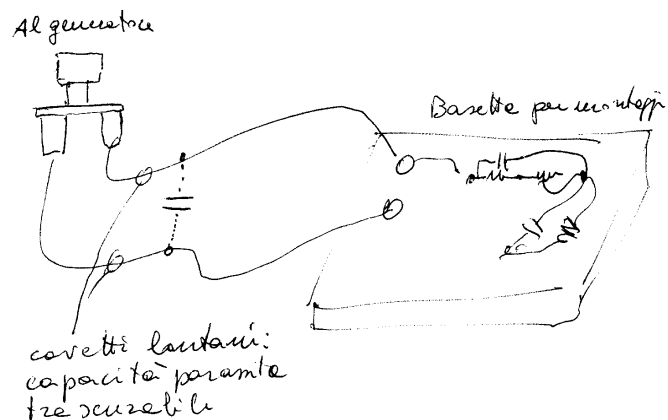 Al generatore
Basetta per montaggi
cavetti lontani:
capacità parassita
trascurabile